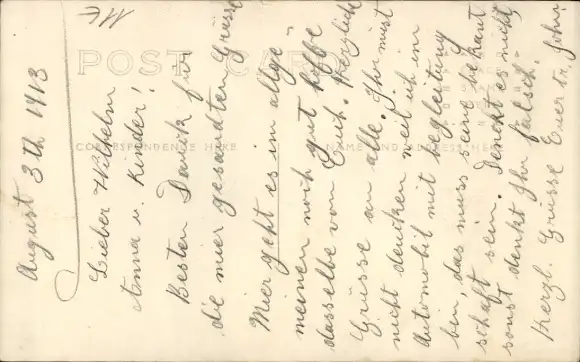 POST CARD
CORRESPONDENCE HERE
NAME AND ADDRESS HERE
August 3th 1913
Lieber Wilhelm
Anna u. Kinder!
Besten Dank für
die mier gesandten Grüsse
Mier geht es im allge-
meinen noch gut hoffe
dasselbe von Euch. Herzliche
Grüsse an alle. Ihr müst
nicht denken weil ich im
Automobil mit begleitung
bin, das muss seine bekant
schaft sein. Denckt es nicht,
sonst denkt Ihr falsch.
Herzl. Grüsse Euer tr.